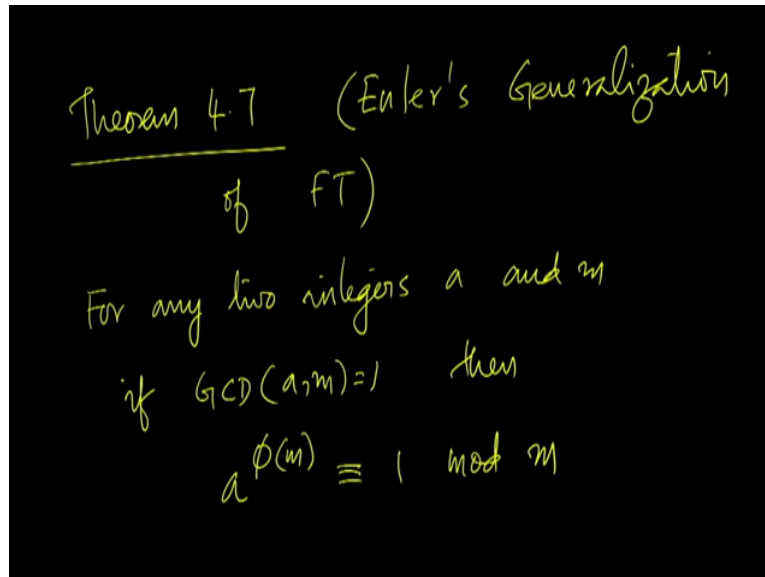 Theorem 4.7 (Euler's Generalization
of FT)
For any two integers a and m
if GCD(a,m)=1 then
a^φ(m) ≡ 1 mod m